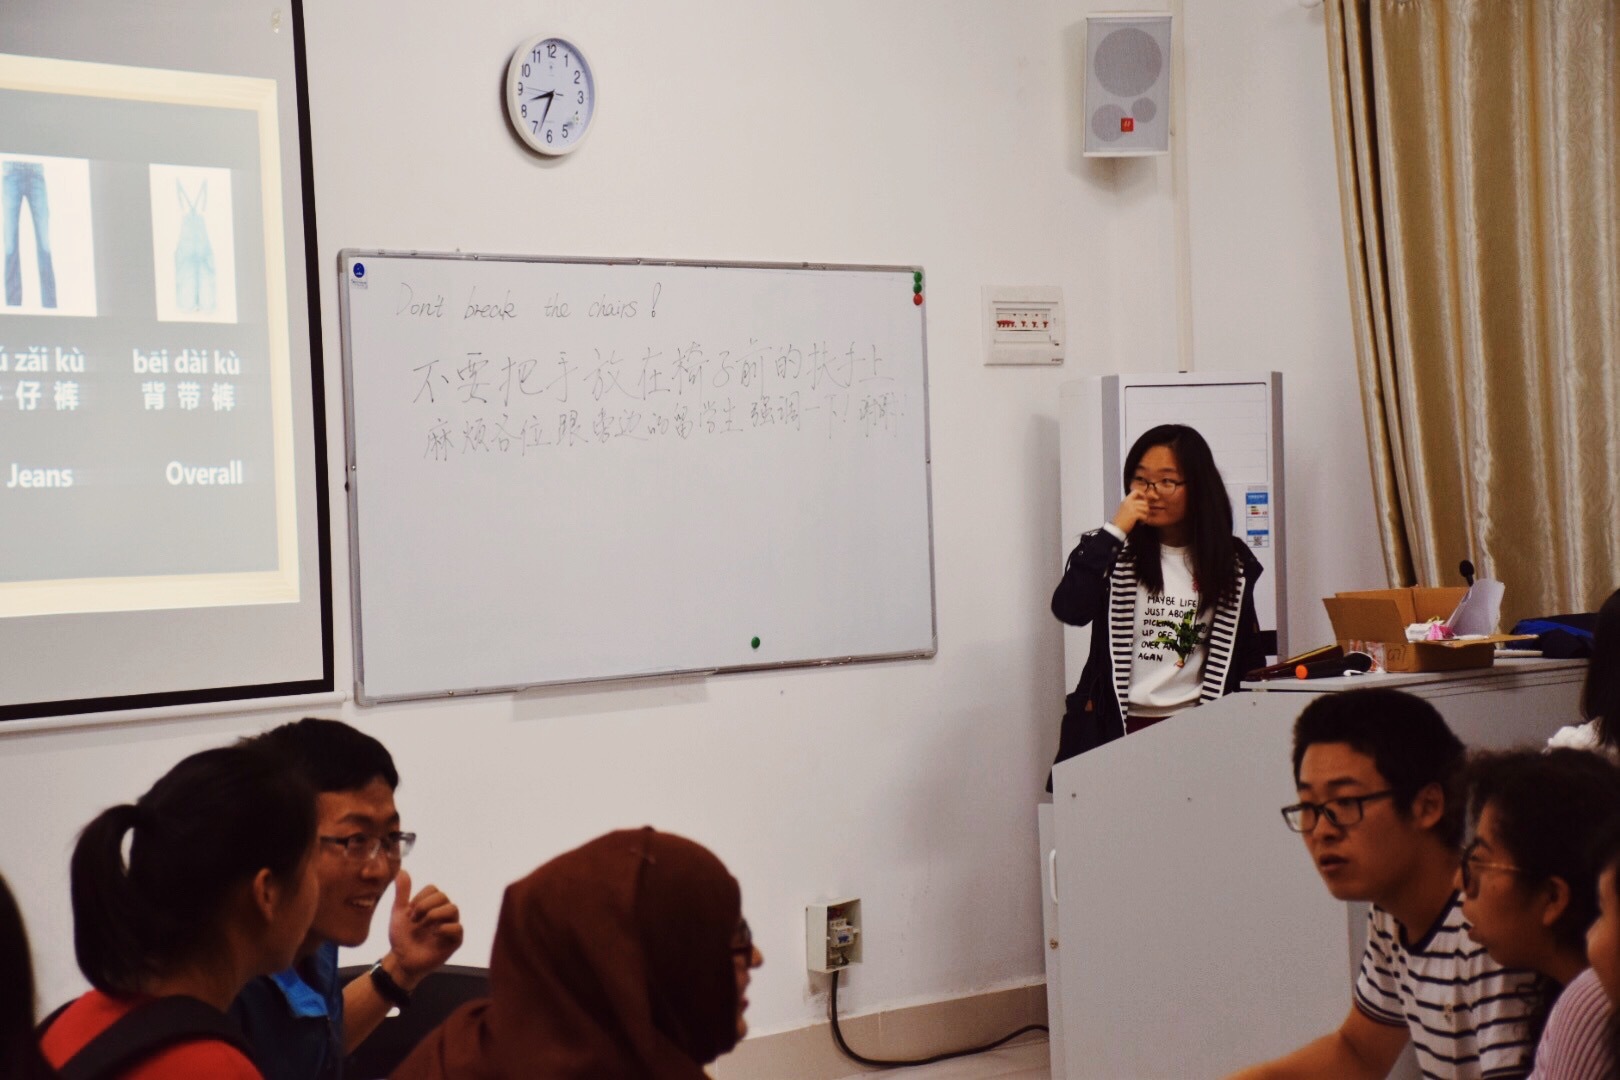 zǎi kù
仔 裤
Jeans
bēi dài kù
背 带 裤
Overall
12
1
2
3
5
6
7
8
9
10
11
Don't break the chairs!
不要把手放在椅子前的扶手上
麻烦各位跟旁边的留学生强调一下！谢谢！
MAYBE LIFE
JUST ABOUT
PICKING
UP OFF
OVER AN
AGAIN